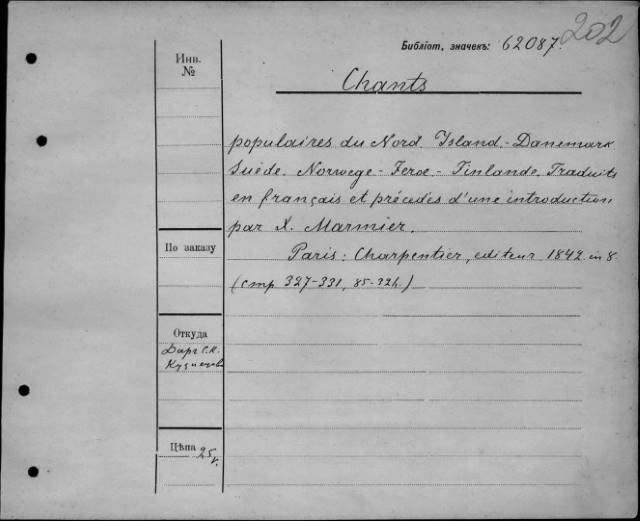 202
Библіот. значекъ: 62087.
Инв.
№
Chants
populaires du Nord. Island.- Danemark
Suède. Norwege - Feroe. - Finlande. Traduits
en français et précedés d'une introduction
par X. Marmier.
По заказу
Paris: Charpentier, editeur 1842. in 8
(стр 327-331, 85-324.)
Откуда
Даръ С.К.
Кузнецова
Цѣна 25 к.